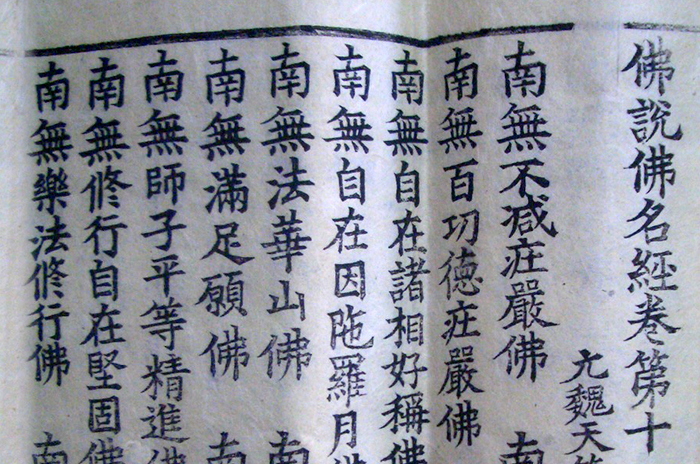 佛說佛名經卷第十
元魏天
南無不减庄嚴佛 南
南無百功德庄嚴佛
南無自在諸相好稱佛
南無自在因陁羅月
南無法華山佛 南
南無滿足願佛 南
南無師子平等精進佛
南無修行自在堅固佛
南無樂法修行佛 南